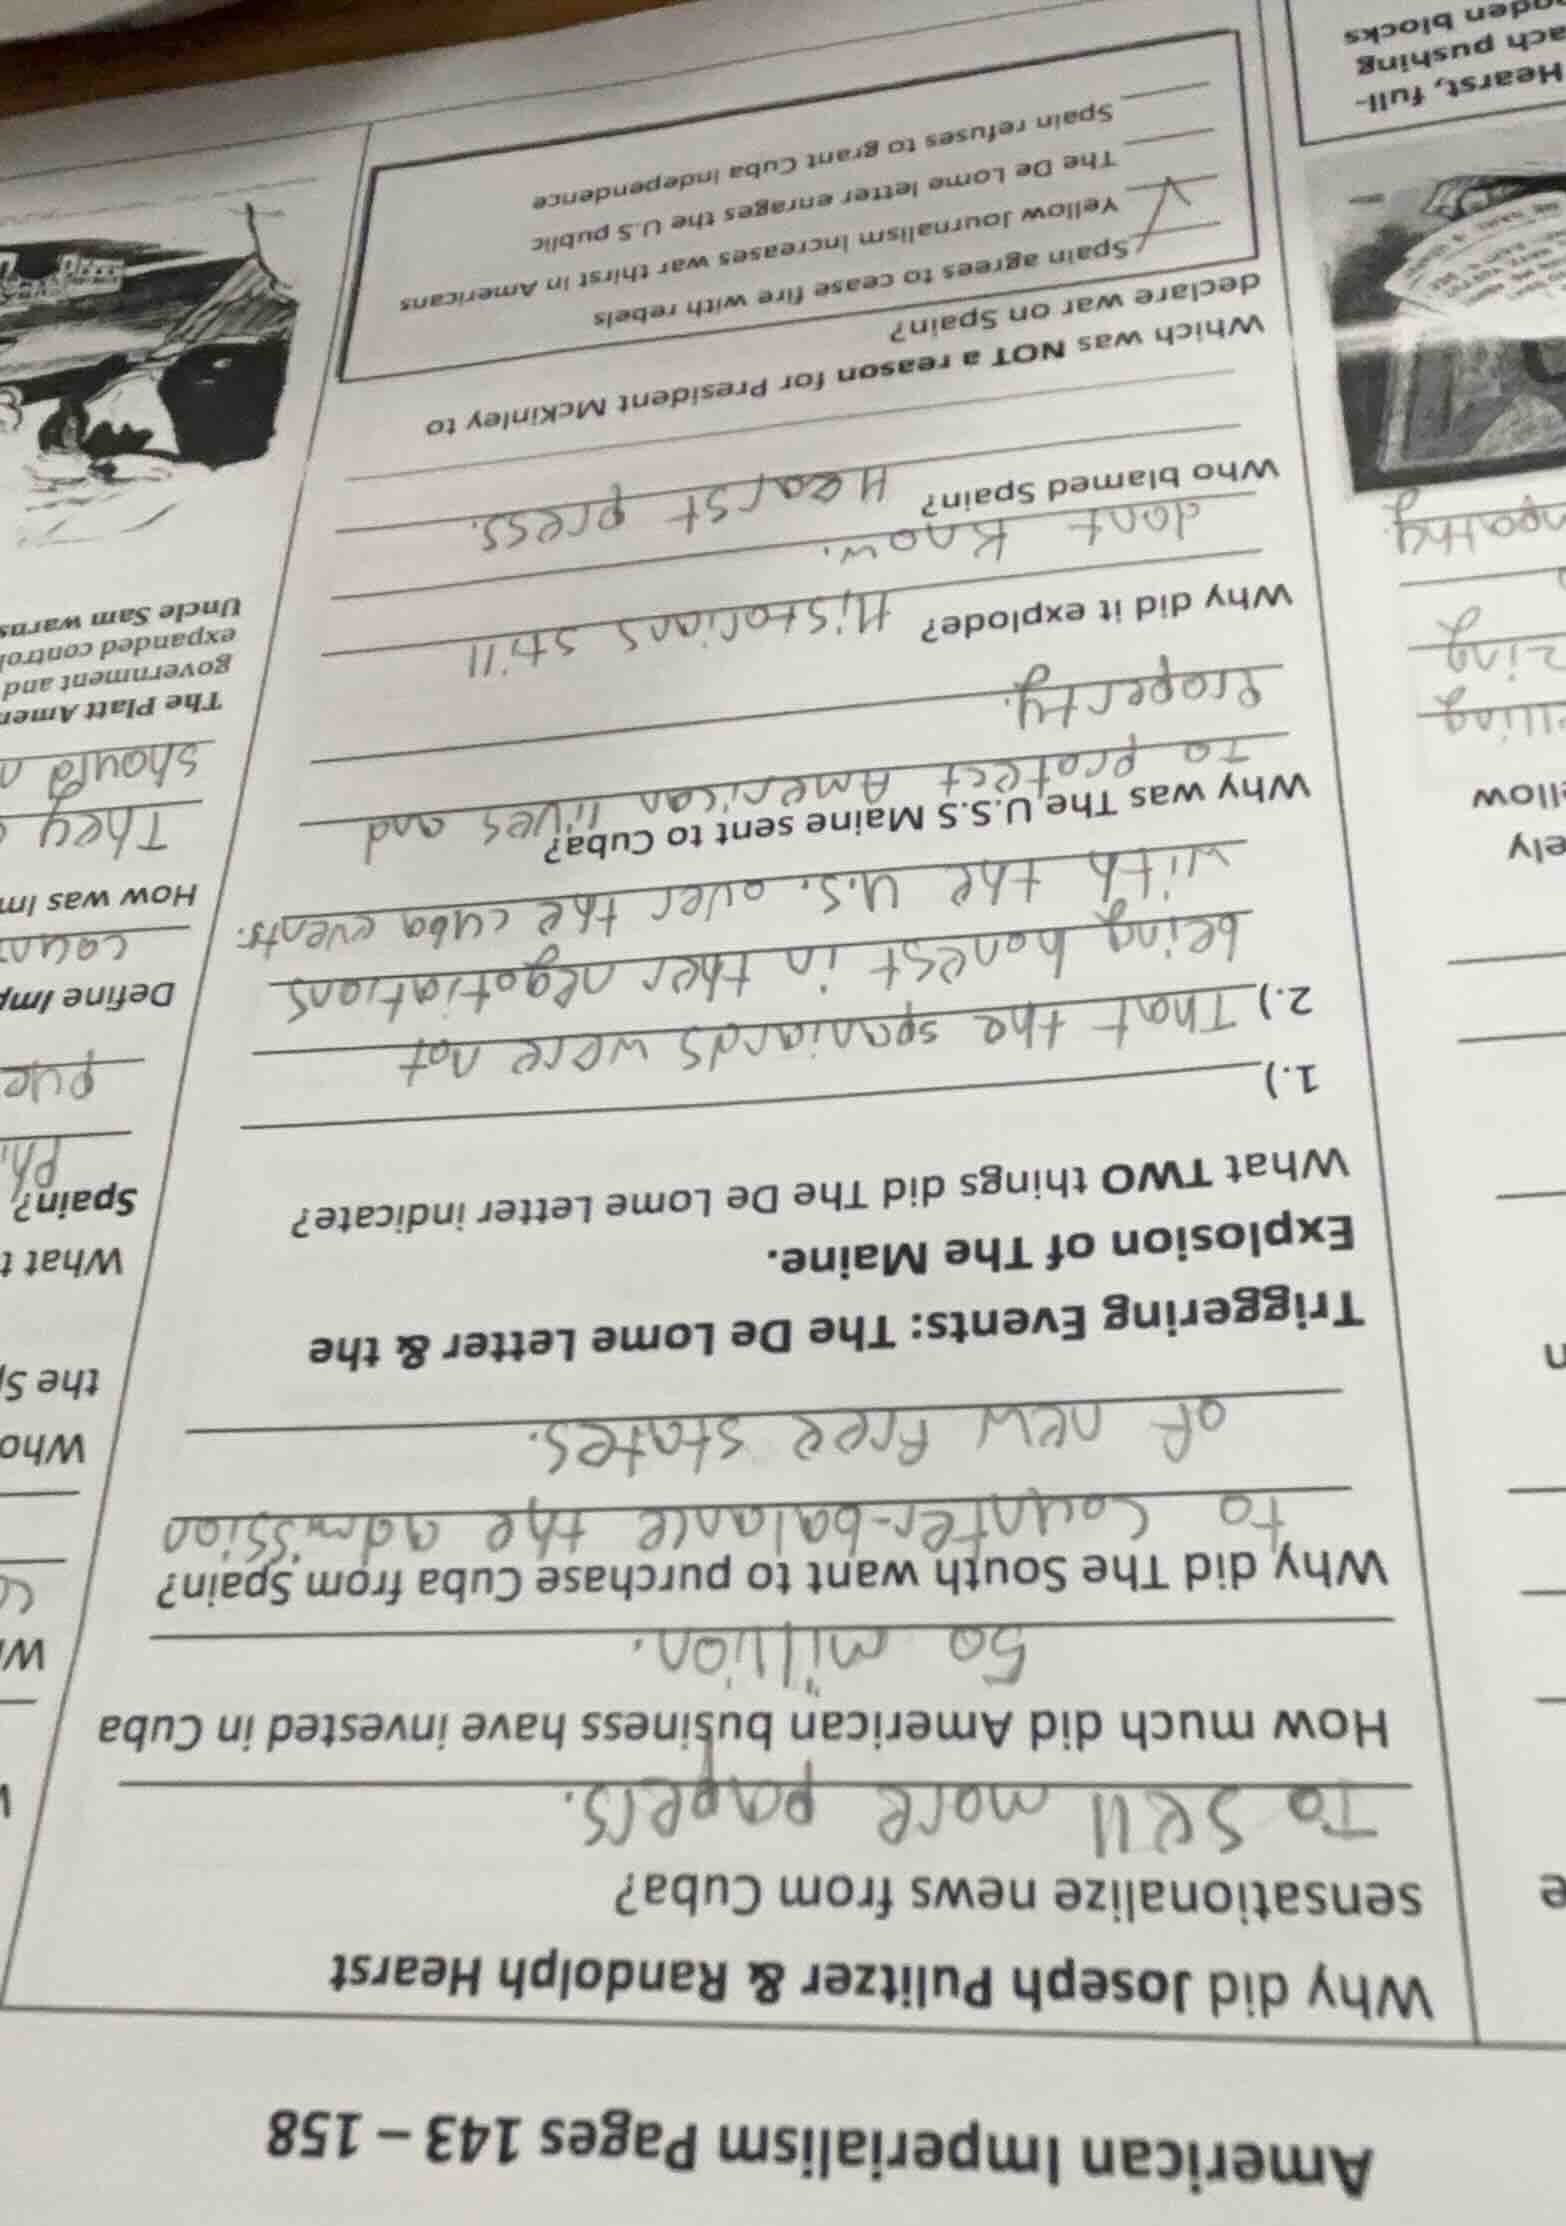 American Imperialism Pages 143 – 158
Why did Joseph Pulitzer & Randolph Hearst
sensationalize news from Cuba?
To sell more papers.
How much did American business have invested in Cuba
50 million.
Why did The South want to purchase Cuba from Spain?
to counter-balance the admission
of new free states.
Triggering Events: The De Lome Letter & the
Explosion of The Maine.
What TWO things did The De Lome Letter indicate?
1.)
2.) That the spaniards were not
being honest in ther negotiations
with the U.S. over the cuba events.
Why was The U.S.S Maine sent to Cuba?
To protect American lives and
Property.
Why did it explode? Historians still
dont know.
Who blamed Spain? Hearst press.
Which was NOT a reason for President McKinley to
declare war on Spain?
Spain agrees to cease fire with rebels
Yellow Journalism increases war thirst in Americans
The De Lome letter enrages the U.S public
Spain refuses to grant Cuba independence
Who
the
What
Spain?
Define
How was
They
should
The Platt
government and
expanded control
Uncle Sam warns
Hearst, full-
pushing
blocks